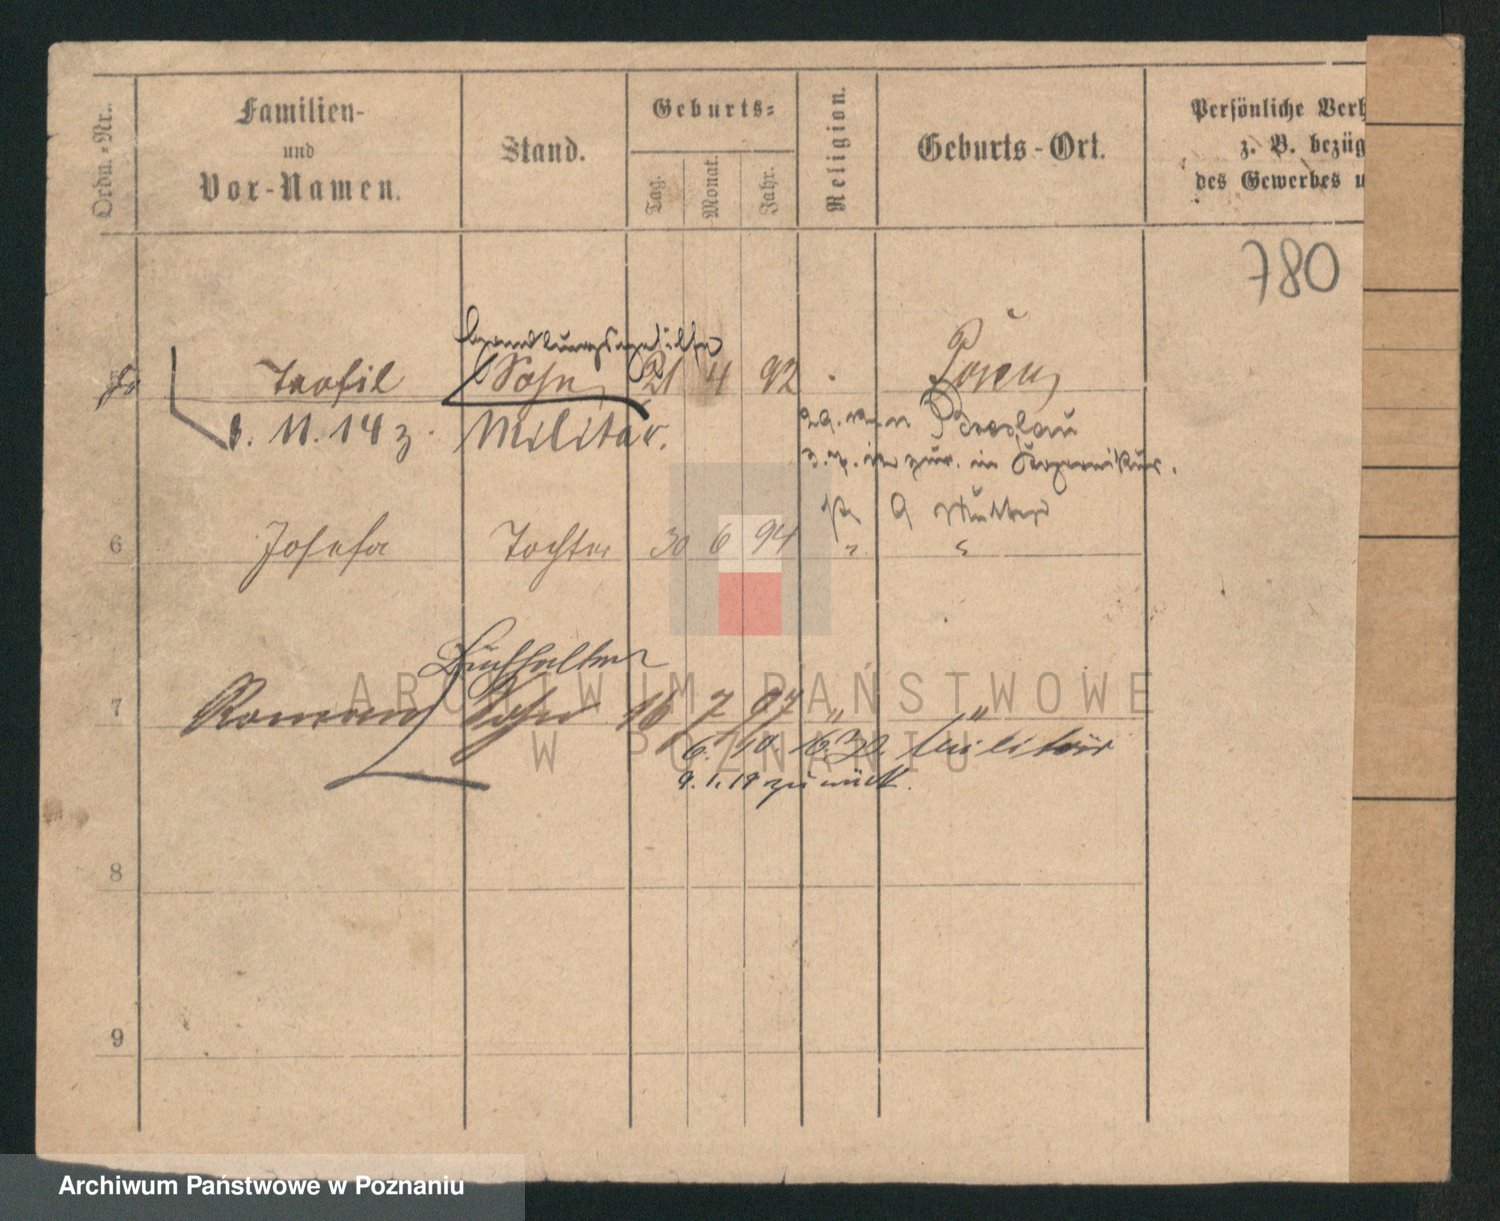 Ordn.-Nr.
Familien-
und
Vor-Namen.
Stand.
Geburts-
Tag.
Monat.
Jahr.
Religion.
Geburts-Ort.
Persönliche Verh
z. B. bezüg
des Gewerbes u
780
Handlungsgehilfe
5 Teofil Sohn 21 4 92 Posen
3. 11. 14 z. Militär.
Breslau
zur. in
Mutter
6 Josefa Tochter 30 6 94 "
Buchhalter
7 Roman Sohn 16 7 97 " "
6. 10. 16. Militär
9. 1. 19 zurück.
8
9
ARCHIWUM PAŃSTWOWE
W POZNANIU
Archiwum Państwowe w Poznaniu